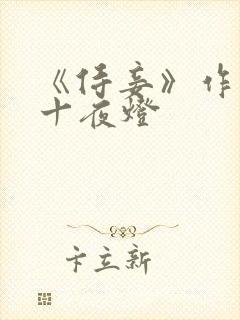 《侍妾》作
十夜燈
卞立新